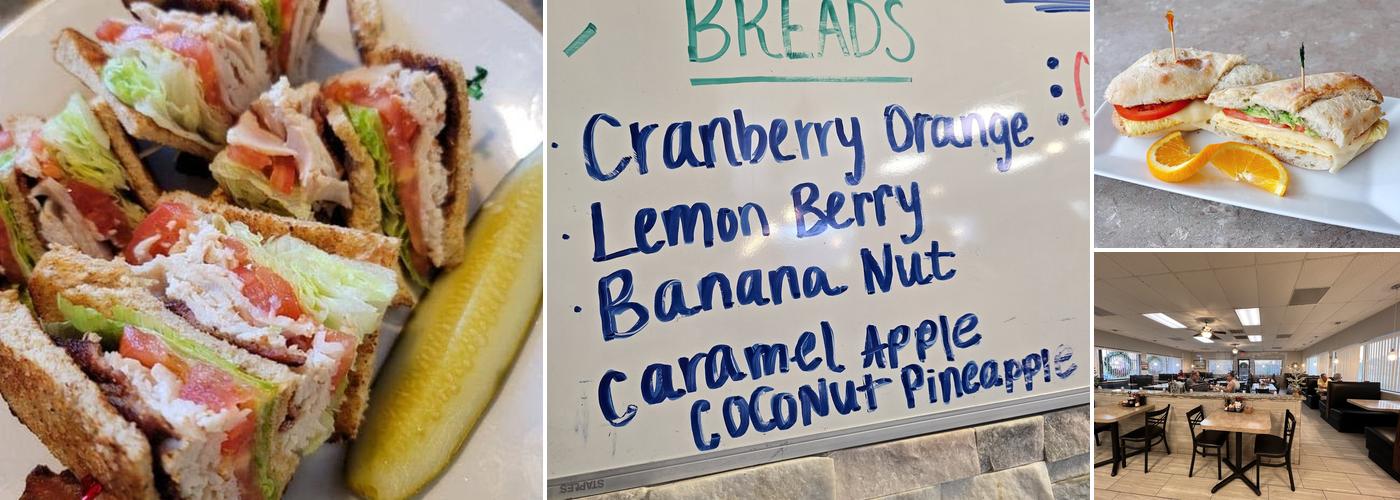 BREADS
Cranberry Orange
Lemon Berry
Banana Nut
Caramel Apple
COCONUT Pineapple
STAPLES